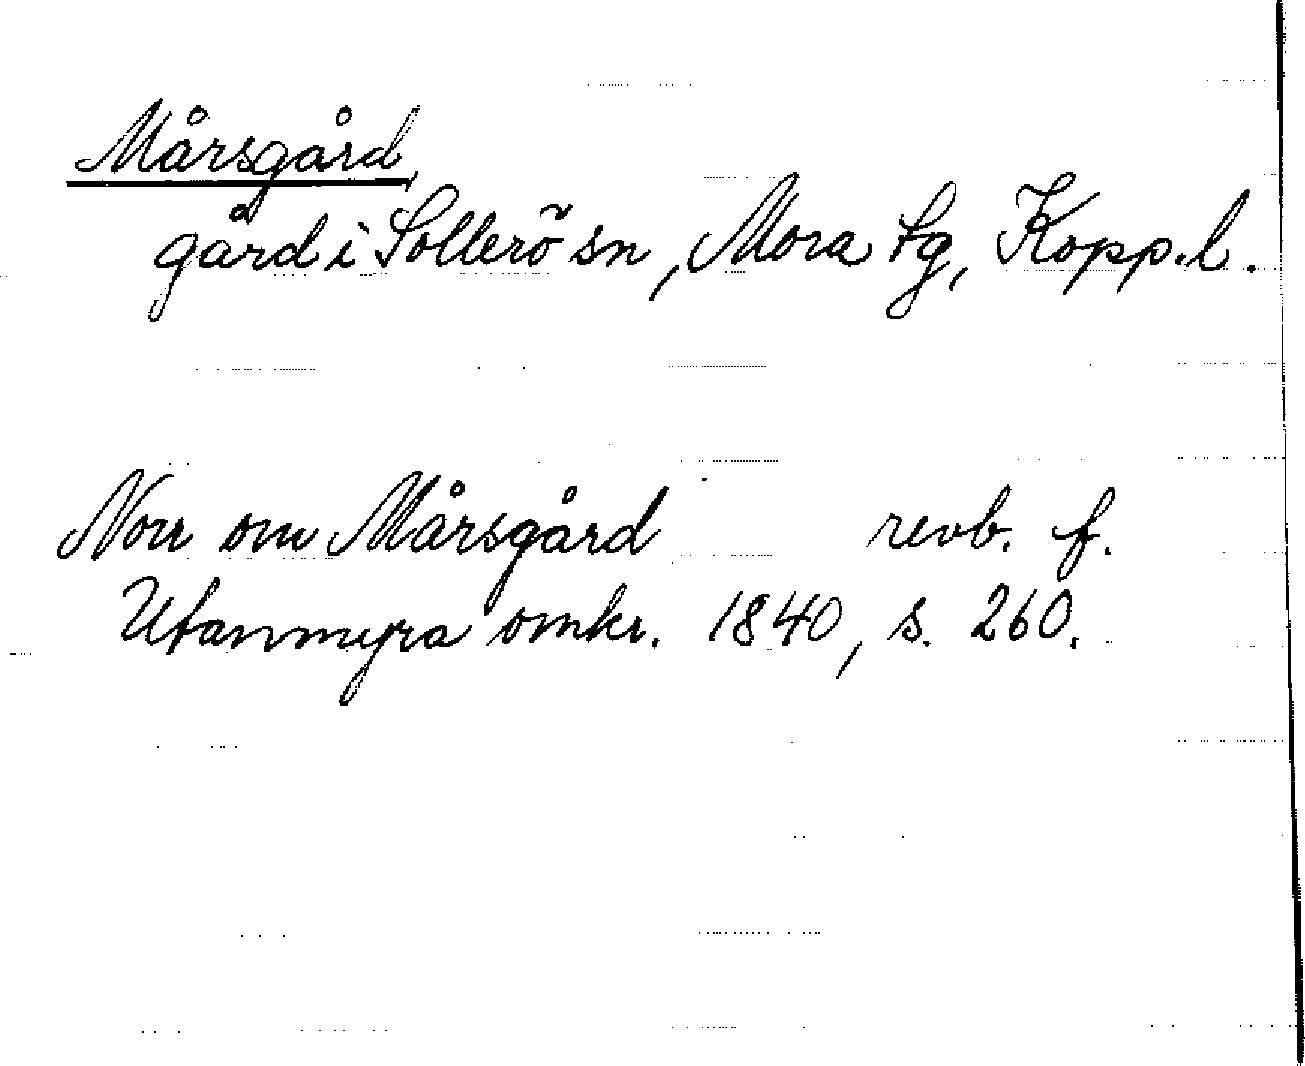 Mårsgård,
gård i Sollerö sn, Mora tg, Kopp.l.
Norr om Mårsgård revb. f.
Utanmyra omkr. 1840, s. 260.